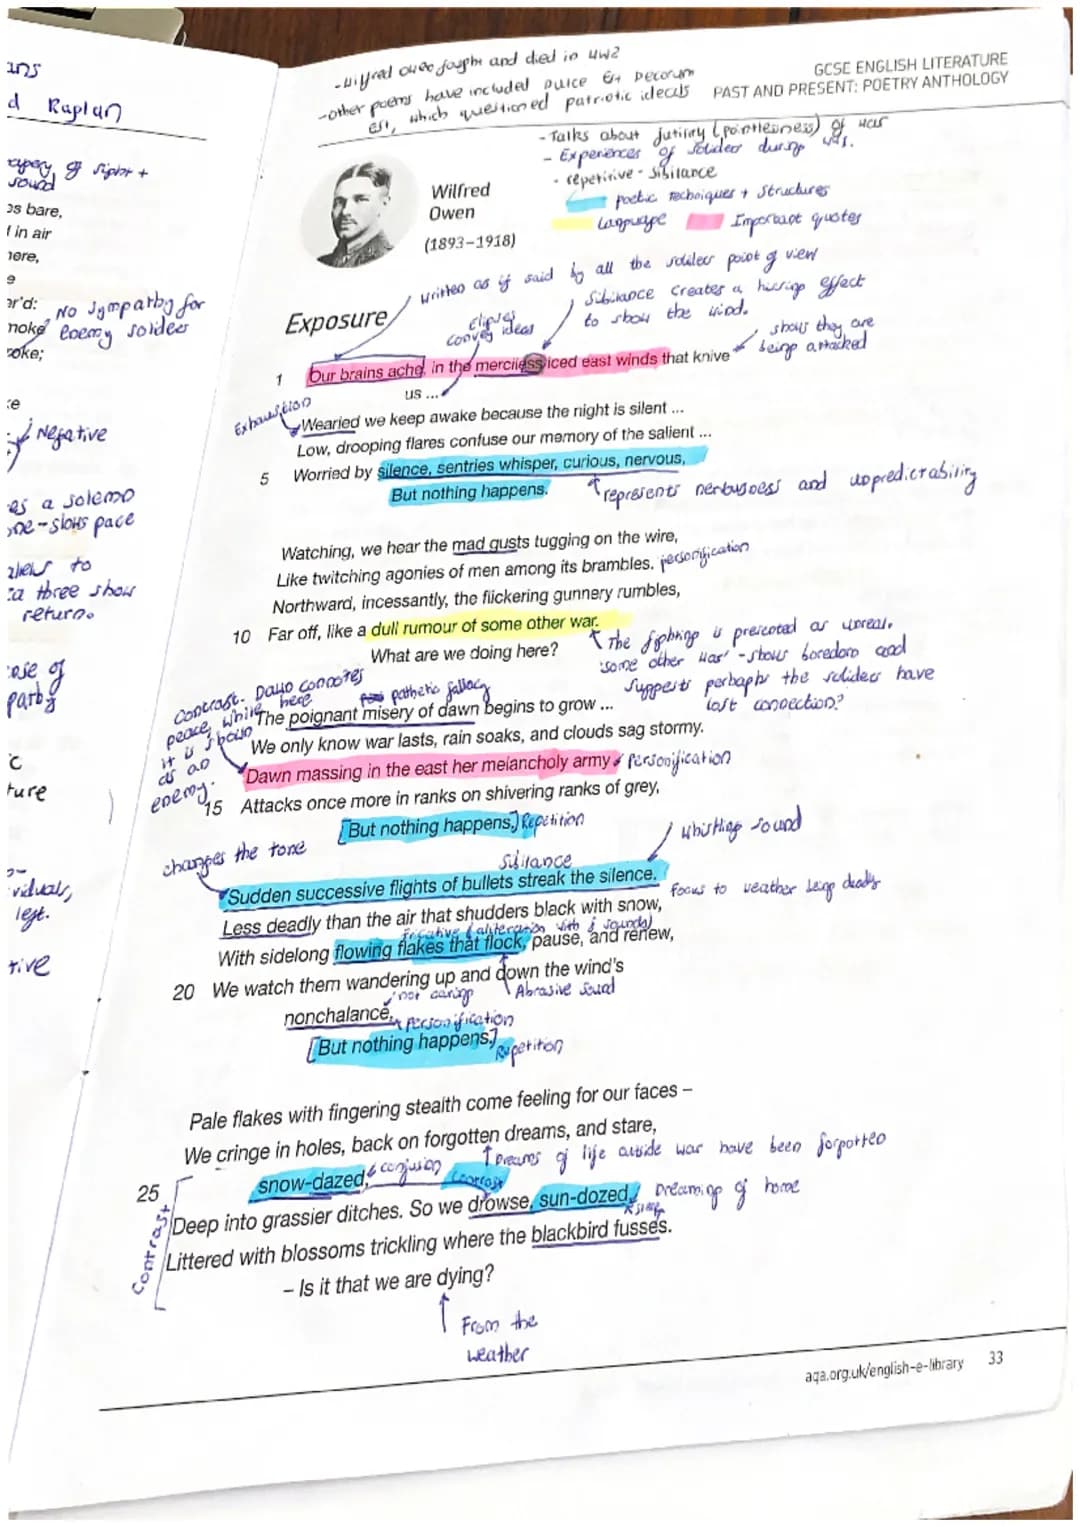 ans
d Raplan
sight +
sound
os bare,
f in air
here,
e
er'd:
No sympathy for
enemy soldiers
moke
oke;
Negative
es a solemn
one-slows pace
to
three show
return.
ase of
party
ture
viduals,
left.
tive
-Wilfred Owen fought and died in ww2
-other poems have included Dulce Et Decorum
est, which questioned patriotic ideals
GCSE ENGLISH LITERATURE
PAST AND PRESENT: POETRY ANTHOLOGY
- Talks about futility (pointlessness) of war
- Experiences of soldiers during war.
- repetitive - Sibilance
poetic techniques + Structures
language
Important quotes
Wilfred
Owen
(1893–1918)
written as if said by all the soldiers point of view
Sibilance creates a hissing effect
to show the wind.
Exposure
elipses
convey ideas
shows they are
being attacked
1 Our brains ache, in the merciless iced east winds that knive
us ...
Exhaustion
Wearied we keep awake because the night is silent ...
Low, drooping flares confuse our memory of the salient ...
5 Worried by silence, sentries whisper, curious, nervous,
But nothing happens.
represents nervousness and unpredictability
Watching, we hear the mad gusts tugging on the wire,
Like twitching agonies of men among its brambles.
personification
Northward, incessantly, the flickering gunnery rumbles,
10 Far off, like a dull rumour of some other war.
What are we doing here?
The fighting is presented as unreal.
'some other war' - shows boredom and
suggests perhaphs the soliders have
lost connection?
Contrast. Dawn connotes
peace, while here
it is shown
as an
enemy.
pathetic fallacy
The poignant misery of dawn begins to grow ...
We only know war lasts, rain soaks, and clouds sag stormy.
Dawn massing in the east her melancholy army
Personification
15 Attacks once more in ranks on shivering ranks of grey,
[But nothing happens.] Repetition
changes the tone
whistling sound
Sibilance
Sudden successive flights of bullets streak the silence.
Less deadly than the air that shudders black with snow,
focus to weather being deadly
Fricative (aliteration with f sounds)
With sidelong flowing flakes that flock, pause, and renew,
20 We watch them wandering up and down the wind's
not caring
Abrasive sound
nonchalance,
personification
[But nothing happens.]
Repetition
Pale flakes with fingering stealth come feeling for our faces –
We cringe in holes, back on forgotten dreams, and stare,
Dreams of life outside war have been forgotten
25 snow-dazed,
confusion
Contrast
Deep into grassier ditches. So we drowse, sun-dozed,
Dreaming of home
sleep
Contrast
Littered with blossoms trickling where the blackbird fusses.
– Is it that we are dying?
From the
weather
aqa.org.uk/english-e-library 33